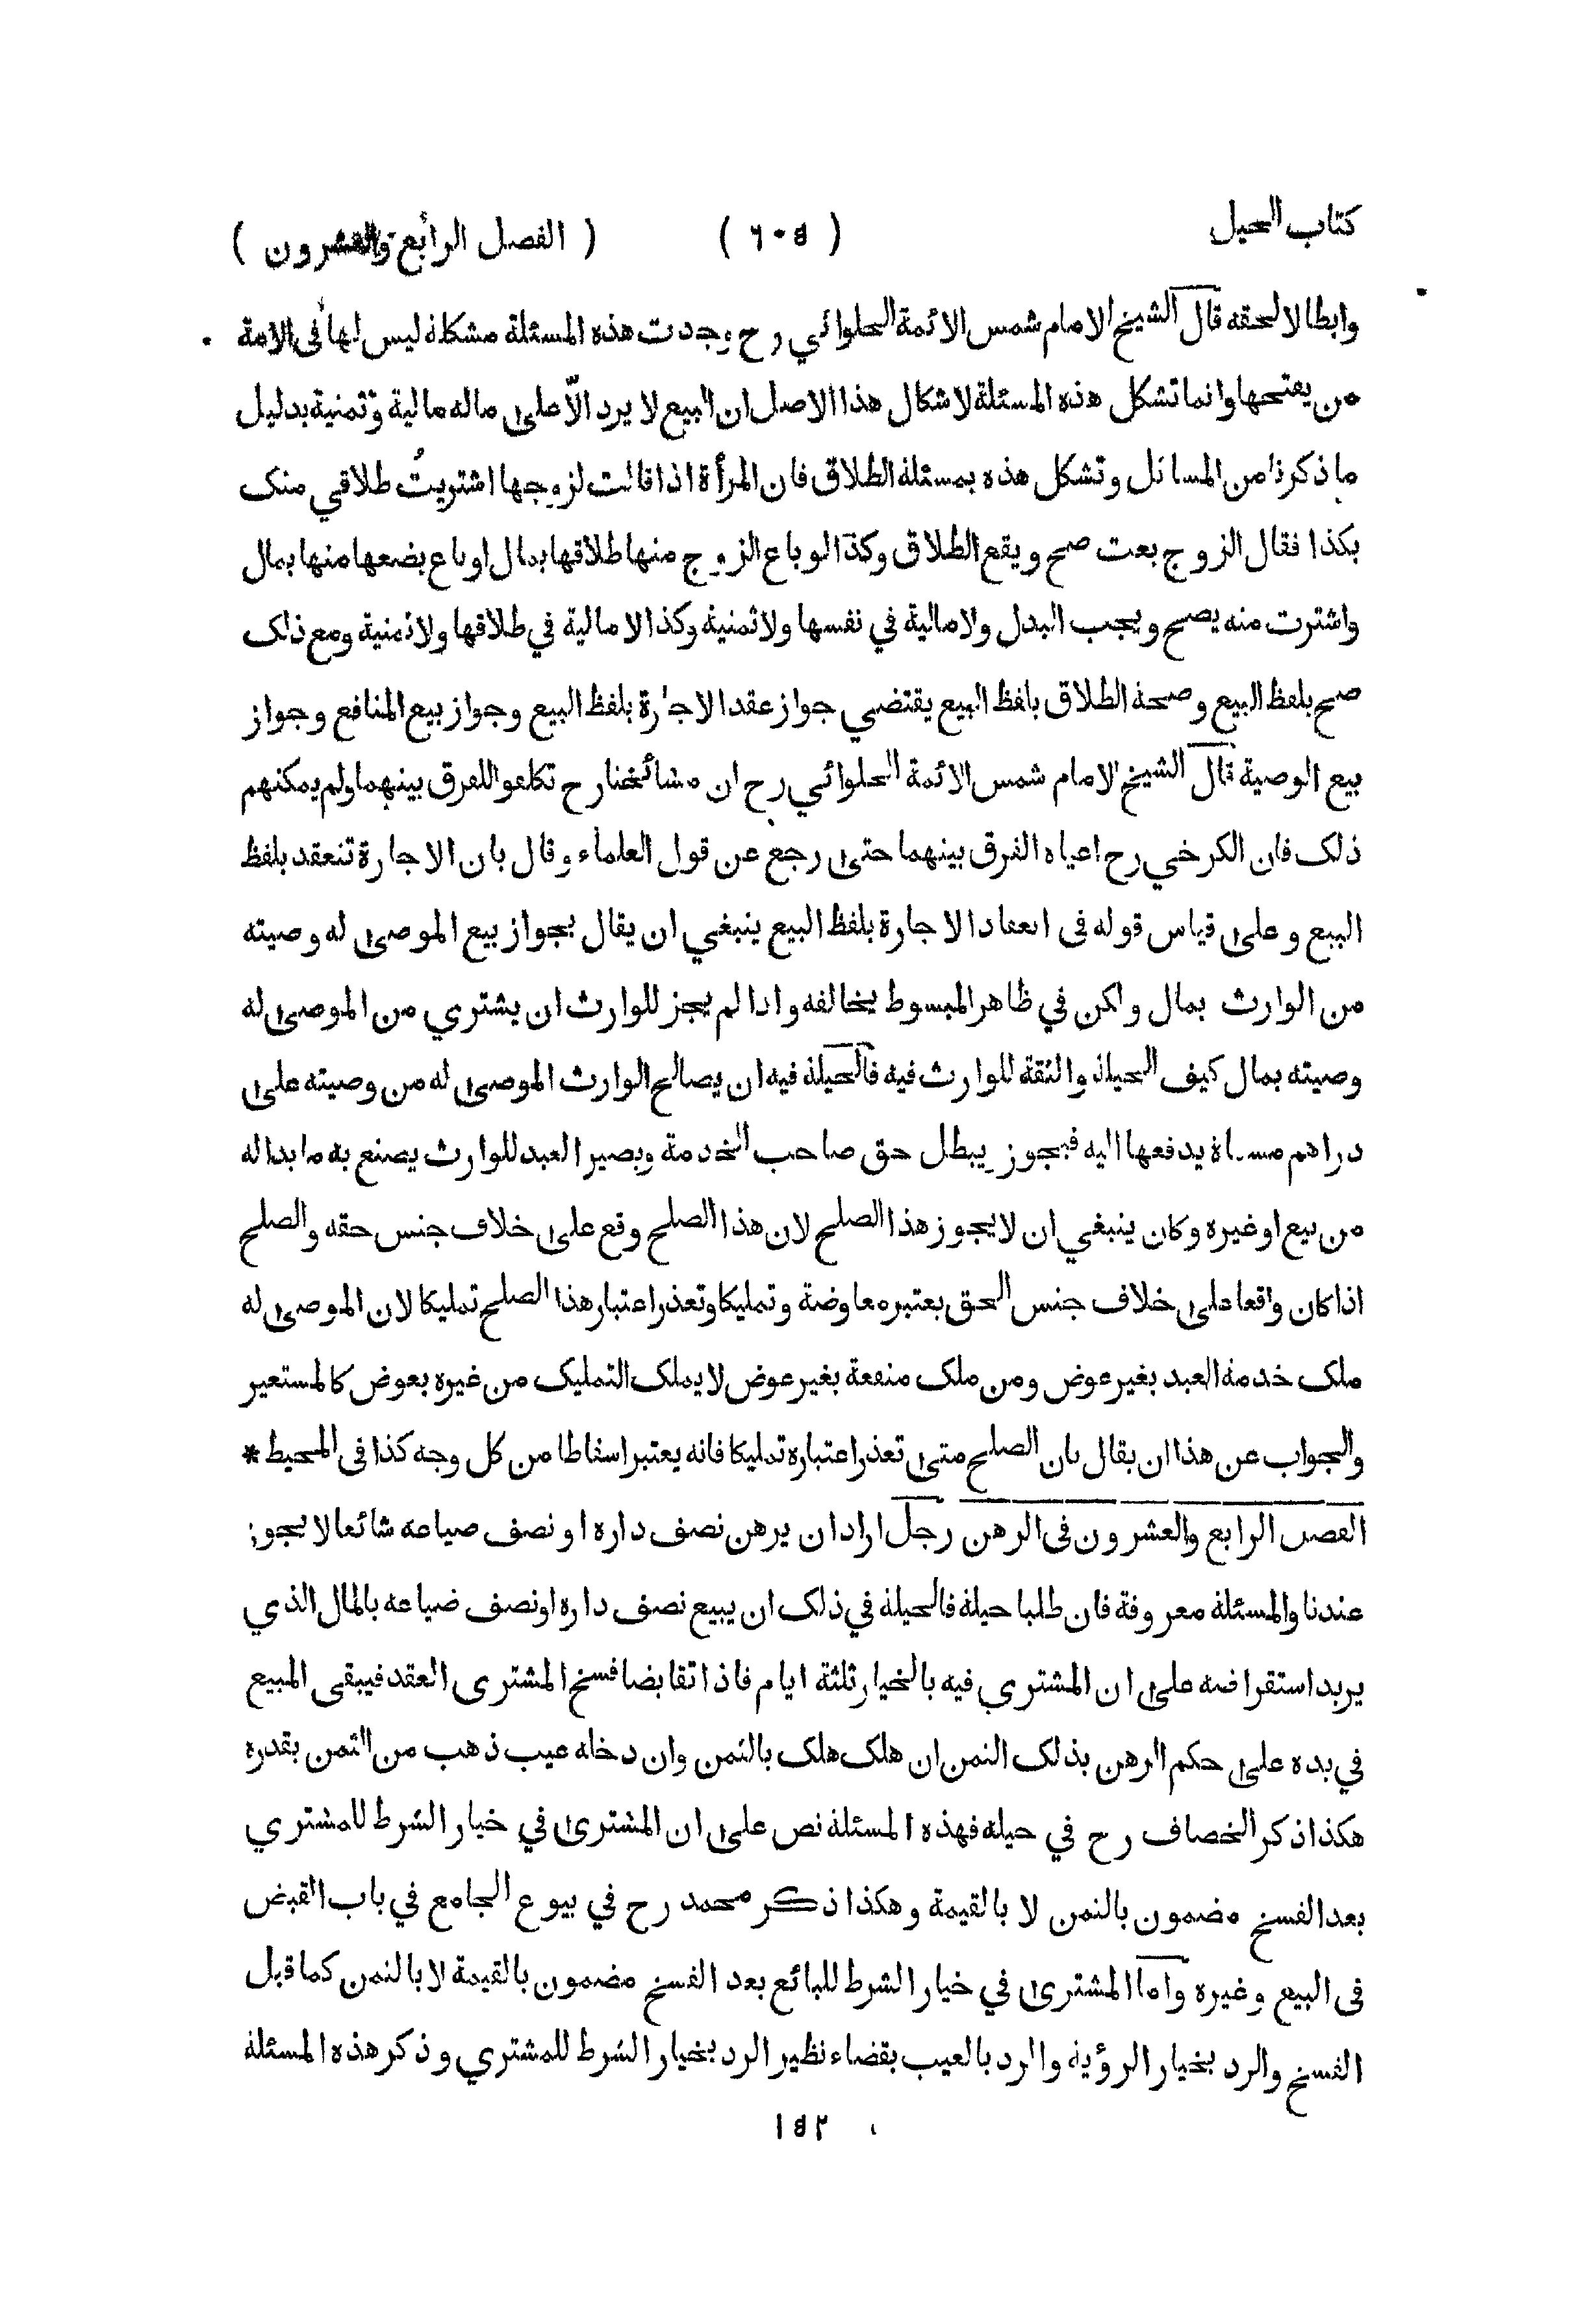 كتاب الحيل ( ٦٠٤ ) ( الفصل الرابع والعشرون )
وابطالا لحقه قال الشيخ الامام شمس الائمة الحلوائي رح وجدت هذه المسئلة مشكلة ليس لها في الامة
من يفتحها وانما تشكل هذه المسئلة لاشكال هذا الاصل ان البيع لا يرد الّا على ما له مالية وثمنية بدليل
ما ذكرنا من المسائل وتشكل هذه بمسئلة الطلاق فان المرأة اذا قالت لزوجها اشتريتُ طلاقي منك
بكذا فقال الزوج بعت صح ويقع الطلاق وكذا لو باع الزوج منها طلاقها بمال او باع بضعها منها بمال
واشترت منه يصح ويجب البدل ولا مالية في نفسها ولا ثمنية وكذا لا مالية في طلاقها ولا ثمنية ومع ذلك
صح بلفظ البيع وصحة الطلاق بلفظ البيع يقتضي جواز عقد الاجارة بلفظ البيع وجواز بيع المنافع وجواز
بيع الوصية قال الشيخ الامام شمس الائمة الحلوائي رح ان مشائخنا رح تكلفوا للفرق بينهما ولم يمكنهم
ذلك فان الكرخي رح اعياه الفرق بينهما حتى رجع عن قول العلماء وقال بان الاجارة تنعقد بلفظ
البيع وعلى قياس قوله في انعقاد الاجارة بلفظ البيع ينبغي ان يقال بجواز بيع الموصى له وصيته
من الوارث بمال ولكن في ظاهر المبسوط يخالفه واذا لم يجز للوارث ان يشتري من الموصى له
وصيته بمال كيف الحيلة والثقة للوارث فيه فالحيلة فيه ان يصالح الوارث الموصى له من وصيته على
دراهم مسماة يدفعها اليه فيجوز يبطل حق صاحب الخدمة ويصير العبد للوارث يصنع به ما بدا له
من بيع او غيره وكان ينبغي ان لا يجوز هذا الصلح لان هذا الصلح وقع على خلاف جنس حقه والصلح
اذا كان واقعا على خلاف جنس الحق يعتبر معاوضة وتمليكا وتعذر اعتبار هذا الصلح تمليكا لان الموصى له
ملك خدمة العبد بغير عوض ومن ملك منفعة بغير عوض لا يملك التمليك من غيره بعوض كالمستعير
والجواب عن هذا ان يقال بان الصلح متى تعذر اعتباره تمليكا فانه يعتبر اسقاطا من كل وجه كذا في المحيط *
الفصل الرابع والعشرون في الرهن رجل اراد ان يرهن نصف داره او نصف ضياعه شائعا لا يجوز
عندنا والمسئلة معروفة فان طلبا حيلة فالحيلة في ذلك ان يبيع نصف داره او نصف ضياعه بالمال الذي
يريد استقراضه على ان المشتري فيه بالخيار ثلثة ايام فاذا تقابضا فسخ المشترى العقد فيبقى المبيع
في يده على حكم الرهن بذلك الثمن ان هلك هلك بالثمن وان دخله عيب ذهب من الثمن بقدره
هكذا ذكر الخصاف رح في حيله فهذه المسئلة نص على ان المشترى في خيار الشرط للمشتري
بعد الفسخ مضمون بالثمن لا بالقيمة وهكذا ذكر محمد رح في بيوع الجامع في باب القبض
في البيع وغيره واما المشترى في خيار الشرط للبائع بعد الفسخ مضمون بالقيمة لا بالثمن كما قبل
الفسخ والرد بخيار الرؤية والرد بالعيب بقضاء نظير الرد بخيار الشرط للمشتري وذكر هذه المسئلة
١٤٢